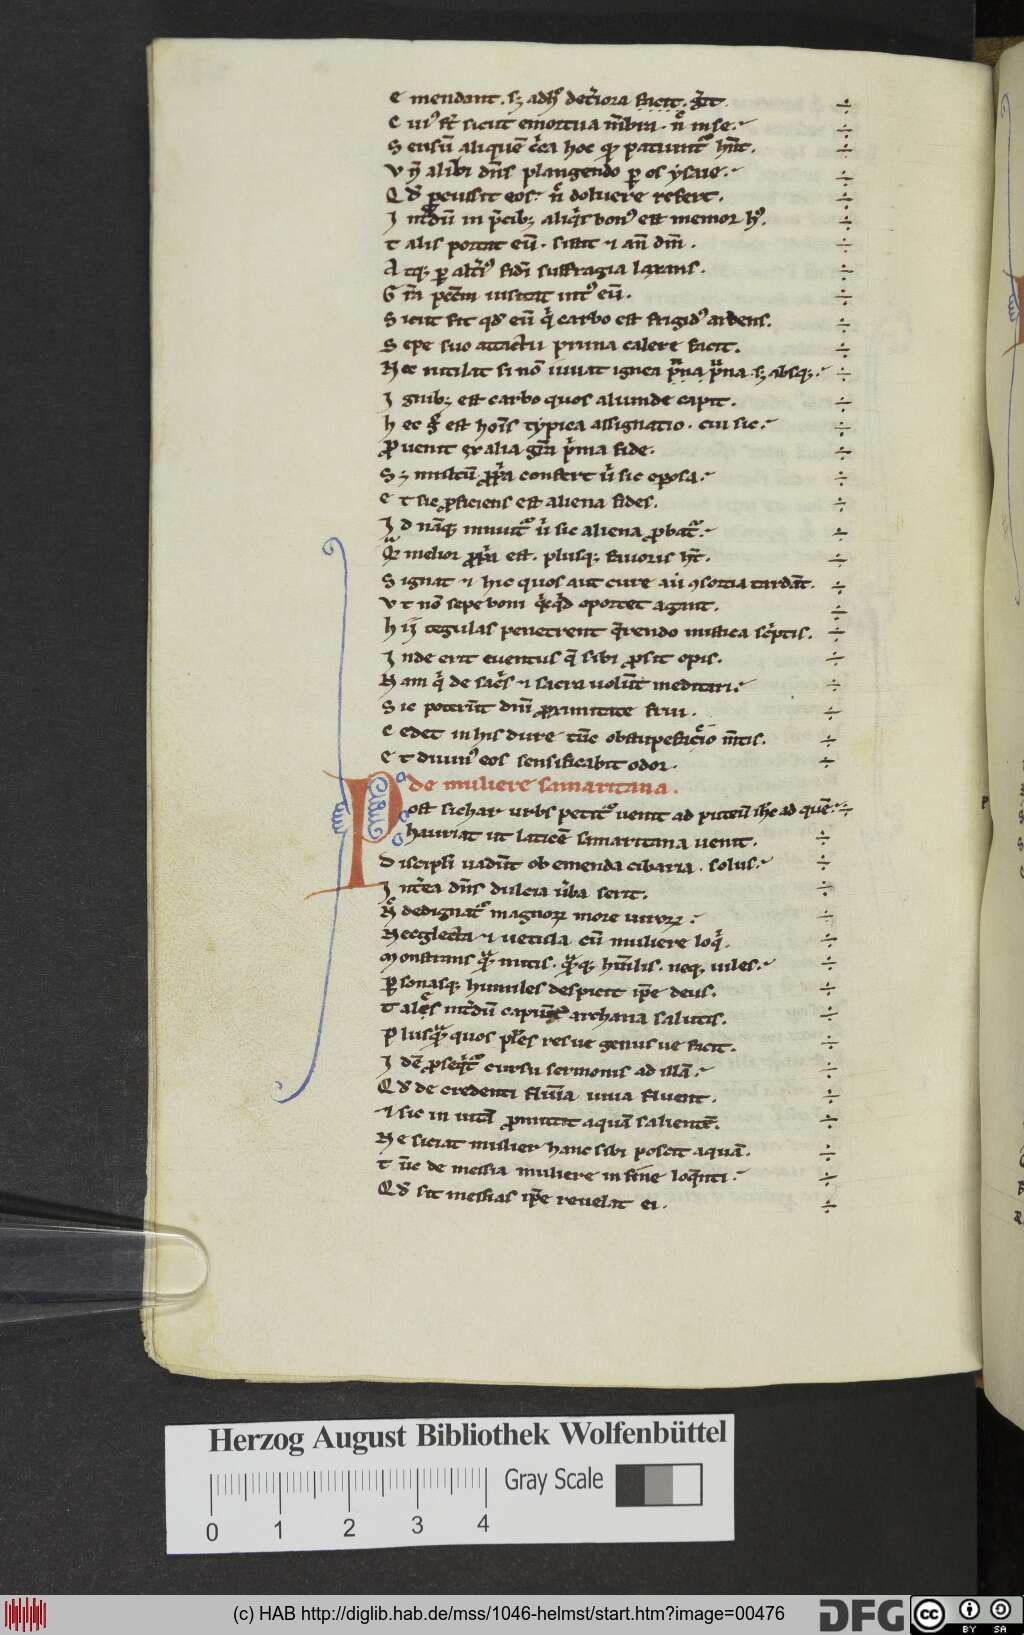 E mendant. sꝫ adhꝰ det̾iora facit. g̾it
C uiꝰ st̄ sicut emortua m̄bra. n̄ in se.
S ensū aliquē c̾ca hoc qͥ patiunt᷑ hn̄t.
V n̄ alibi dn̄s plangendo ꝑ os ysaie.
Q d̓ ꝑcussit eos. n̄ doluere refert.
I nt̾dū in p̄cibꝫ aliqͥs bonꝰ est memor hꝰ.
T alis portat eū. sistit ⁊ an̄ dm̄.
A tqꝫ ꝑ alt̾iꝰ fidī suffragia laxans.
G r̄a pcc̄m uisitat intꝰ eū.
S icut fit qd̓ eū qͥ carbo est frigidꝰ ardens.
S epe suo attactu pruna calere facit.
N ec rutilat si nō iuuat ignea p̾na sꝫ absqꝫ.
I gnibꝫ est carbo quos aliunde capit.
H ec gͦ est hoīs typica assignatio. cui sic.
P̲ uenit ex alia gr̄a p̾ma fide.
S ꝫ multū ꝓp̾a confert ū sic eposa.
E t sic ꝓficiens est aliena fides.
I d nāqꝫ innuit᷑ ū sic aliena ꝓbat᷑.
Qͣ melior ꝓp̾a est. plusqꝫ fauoris ht̄.
S ignat ⁊ hic quos aut cure aū ꝯsortia tardāt.
V t nō sepe boni qͥcqͥd oportet agant.
H ij tegulas penetrent q̄rendo mistica sc̾ptis.
I nde erit euentus q̄ sibi ꝓsit opis.
N am qͥ de sac̾s ⁊ sacra uolūt meditari.
S ic poterūt dn̄i ꝓximitate frui.
C edet in his dure tūc obstupefactio m̄tis.
E t diuinꝰ eos sensificabit odor.
de muliere samaritana.
Post sichar urbs petit᷑ uenit ad puteū ihc̄ ad quē.
hauriat ut laticē samaritana uenit.
D iscipli uadūt ob emenda cibaria. solus.
I nt̾ea dn̄s dulcia ūba serit.
N̄ dedignat᷑ magnoꝝ more uiroꝝ.
N ecglecta ⁊ uetula cū muliere loqͥ.
M onstrans qͣꝫ mitis. qͣꝫqꝫ hūilis. neqꝫ uiles.
P̲ sonasqꝫ humiles despicit ip̄e deus.
T ales nt̾dū capiūt᷑ archana salutis.
P lusqͣꝫ quos pl̄es res ue genus ue facit.
I dē ꝓseqͥt᷑ cursu sermonis ad illā.
Q d̓ de credenti flūia uiua fluent.
⁊ sic in uitā ꝓmittit aquā salientē.
N e siciat mulier hanc sibi poscit aquā.
T ūc de messia muliere in fine loq̄nti.
Q d̓ sit messias ip̄e reuelat ei.
Herzog August Bibliothek Wolfenbüttel
Gray Scale
0 1 2 3 4
(c) HAB http://diglib.hab.de/mss/1046-helmst/start.htm?image=00476
DFG
cc BY SA